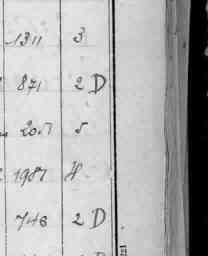 1311 3
871 2 D
205 5
1987 H
746 2 D